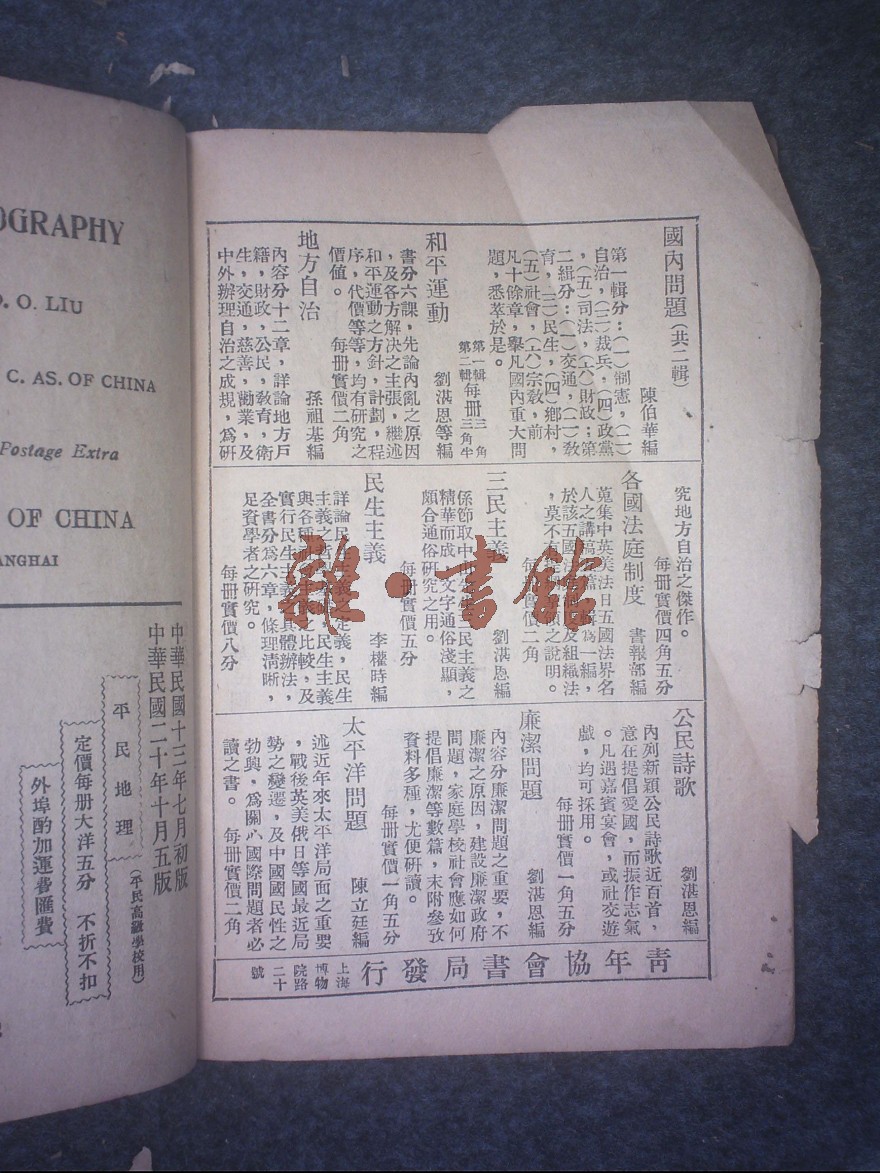 OGRAPHY
D. O. LIU
C. AS. OF CHINA
Postage Extra
OF CHINA
ANGHAI
中華民國十三年七月初版
中華民國二十年十月五版
平民地理
(平民高級學校用)
定價每册大洋五分 不折不扣
外埠酌加運費匯費
國內問題(共二輯)
陳伯華編
第一輯分:(一)制憲,(二)
自治,(三)裁兵,(四)政黨
,(五)司法,(六)財政;第
二緝分:(一)交通,(二)敎
育,(三)民生,(四)鄉村,
(五)社會,(六)宗敎,前
凡十餘章,舉凡國內重大問
題,悉萃於是。
第一輯 每册三角
第二輯 三角半
和平運動
劉湛恩等編
書分六課,先論內亂之原因
,及各方解决之主張,繼述
和平運動之方針,計劃,程
序,代價等等,均有研究之
價値。 每册實價二角
地方自治
孫祖基編
內容分十二章,詳論地方戶
籍,財政,公民,敎育,衛
生,交通,慈善,勸業,及
中外辦理自治之成規,爲研
究地方自治之傑作。
每册實價四角五分
各國法庭制度
書報部編
蒐集中英美法日五國法界名
人之講稿
爲一編,
於該五國
及組織法
,莫不
之說明。
每
價二角
三民主義
劉湛恩編
係節取中山
民主義之
精華而成,文字通俗淺顯,
頗合通俗研究之用。
每册實價五分
民生主義
李權時編
詳論民
之定義,民生
主義之
民生主義
與各種
之比較,及
實行民生主義
具體辦法,
全書分爲六章,條理淸晰,
足資學者之研究。
每册實價八分
公民詩歌
劉湛恩編
內列新穎公民詩歌近百首,
意在提倡愛國,而振作志氣
。凡遇嘉賓宴會,或社交遊
戲,均可採用。
每册實價一角五分
廉潔問題
劉湛恩編
內容分廉潔問題之重要,不
廉潔之原因,建設廉潔政府
問題,家庭學校社會應如何
提倡廉潔等數篇,末附參攷
資料多種,尤便研讀。
每册實價一角五分
太平洋問題
陳立廷編
述近年來太平洋局面之重要
,戰後英美俄日等國最近局
勢之變遷,及中國國民性之
勃興,爲關心國際問題者必
讀之書。 每册實價二角
靑年協會書局發行
上海博物院路二十號
雜·書館